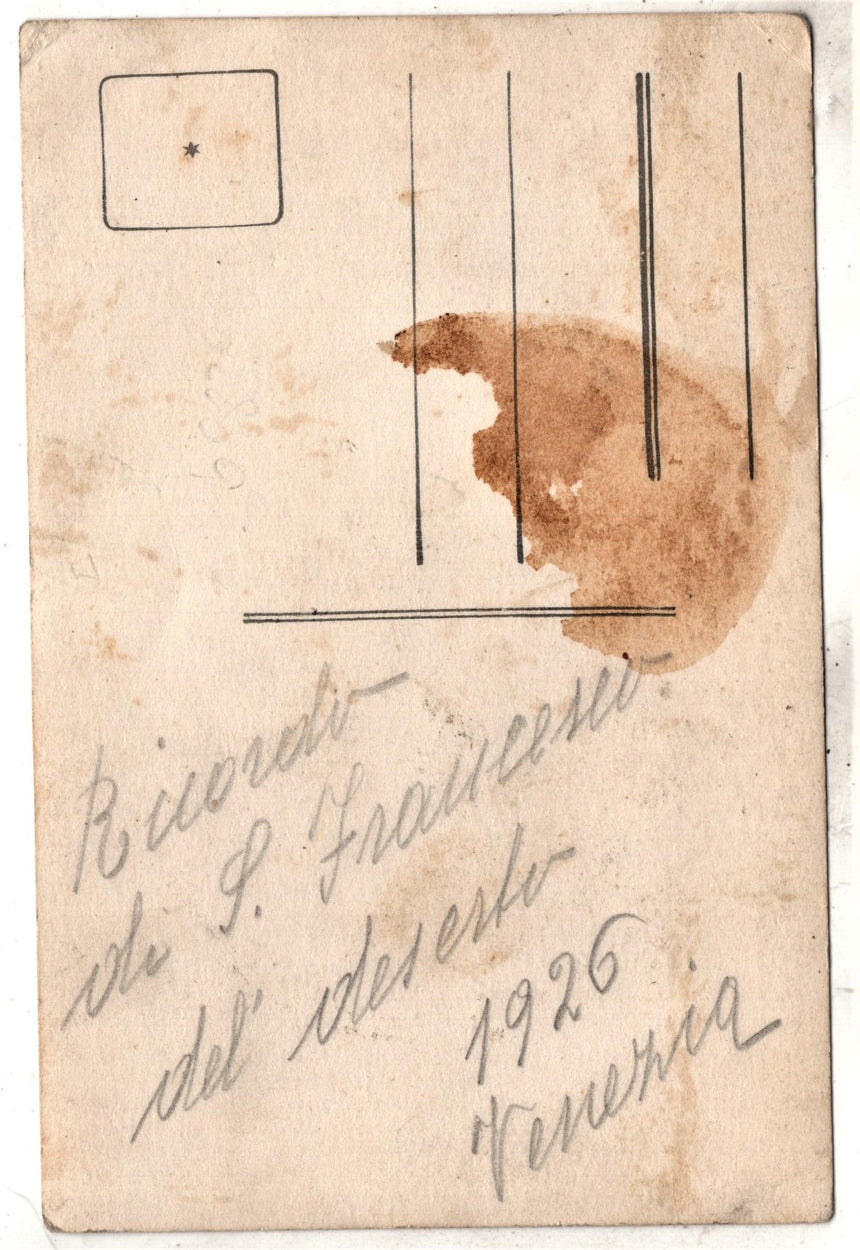 Ricordo
di S. Francesco.
del' deserto
1926
Venezia